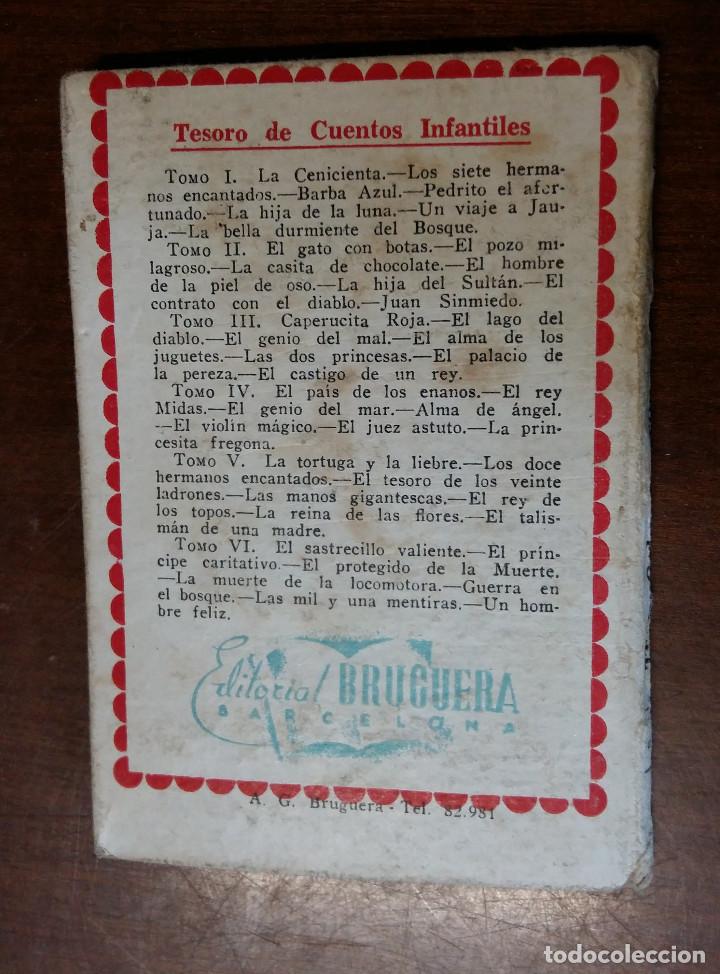 Tesoro de Cuentos Infantiles
Tomo I. La Cenicienta.—Los siete herma-
nos encantados.—Barba Azul.—Pedrito el afor-
tunado.—La hija de la luna.—Un viaje a Jau-
ja.—La bella durmiente del Bosque.
Tomo II. El gato con botas.—El pozo mi-
lagroso.—La casita de chocolate.—El hombre
de la piel de oso.—La hija del Sultán.—El
contrato con el diablo.—Juan Sinmiedo.
Tomo III. Caperucita Roja.—El lago del
diablo.—El genio del mal.—El alma de los
juguetes.—Las dos princesas.—El palacio de
la pereza.—El castigo de un rey.
Tomo IV. El país de los enanos.—El rey
Midas.—El genio del mar.—Alma de ángel.
—El violín mágico.—El juez astuto.—La prin-
cesita fregona.
Tomo V. La tortuga y la liebre.—Los doce
hermanos encantados.—El tesoro de los veinte
ladrones.—Las manos gigantescas.—El rey de
los topos.—La reina de las flores.—El talis-
mán de una madre.
Tomo VI. El sastrecillo valiente.—El prín-
cipe caritativo.—El protegido de la Muerte.
—La muerte de la locomotora.—Guerra en
el bosque.—Las mil y una mentiras.—Un hom-
bre feliz.
Editorial BRUGUERA
BARCELONA
A. G. Bruguera - Tel. 82.981
todocoleccion